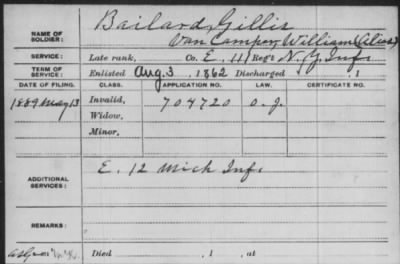 Bailard, Gillis
NAME OF SOLDIER: Van Camper, William (Alias)
SERVICE: Late rank, Co. E, 111 Reg't N.Y. Inf.
TERM OF SERVICE: Enlisted Aug. 3, 1862 Discharged , 1
DATE OF FILING. CLASS. APPLICATION NO. LAW. CERTIFICATE NO.
1889 May 13 Invalid, 704720 O.J.
Widow,
Minor,
E. 12 Mich Inf.
ADDITIONAL SERVICES:
REMARKS:
Died , 1 , at